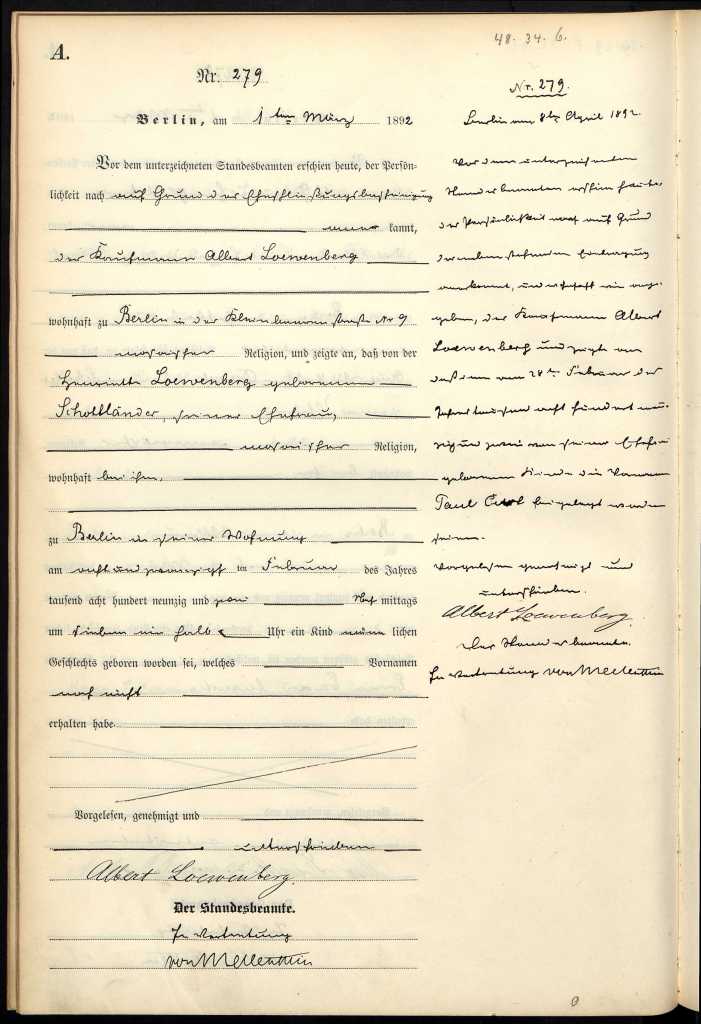 A.
48. 34. 6.
Nr. 279
Berlin, am 1ten März 1892
Vor dem unterzeichneten Standesbeamten erschien heute, der Persön-
lichkeit nach auf Grund der Eheschließungsbescheinigung
aner kannt,
der Kaufmann Albert Loewenberg
wohnhaft zu Berlin in der Kleinbeerenstraße No 9
mosaischer Religion, und zeigte an, daß von der
Henriette Loewenberg geborenen
Schottländer, seiner Ehefrau,
mosaischer Religion,
wohnhaft bei ihm,
zu Berlin in seiner Wohnung
am acht und zwanzigsten Februar des Jahres
tausend acht hundert neunzig und zwei Nach mittags
um sieben ein halb Uhr ein Kind männ lichen
Geschlechts geboren worden sei, welches Vornamen
noch nicht
erhalten habe.
Vorgelesen, genehmigt und
unterschrieben
Albert Loewenberg.
Der Standesbeamte.
In Vertretung
von Mellenthin
Nr. 279.
Berlin am 8ten April 1892.
Vor dem unterzeichneten
Standesbeamten erschien heute,
der Persönlichkeit nach auf Grund
der nebenstehenden Eintragung
anerkannt, und
geben, der Kaufmann Albert
Loewenberg und zeigte an
daß dem am 28ten Februar des
Jahres tausend acht hundert neun-
zig und zwei von seiner Ehefrau
geborenen Kinde die Vornamen
Paul Curt beigelegt worden
seien.
Vorgelesen genehmigt und
unterschrieben.
Albert Loewenberg.
Der Standesbeamte.
In Vertretung von Mellenthin